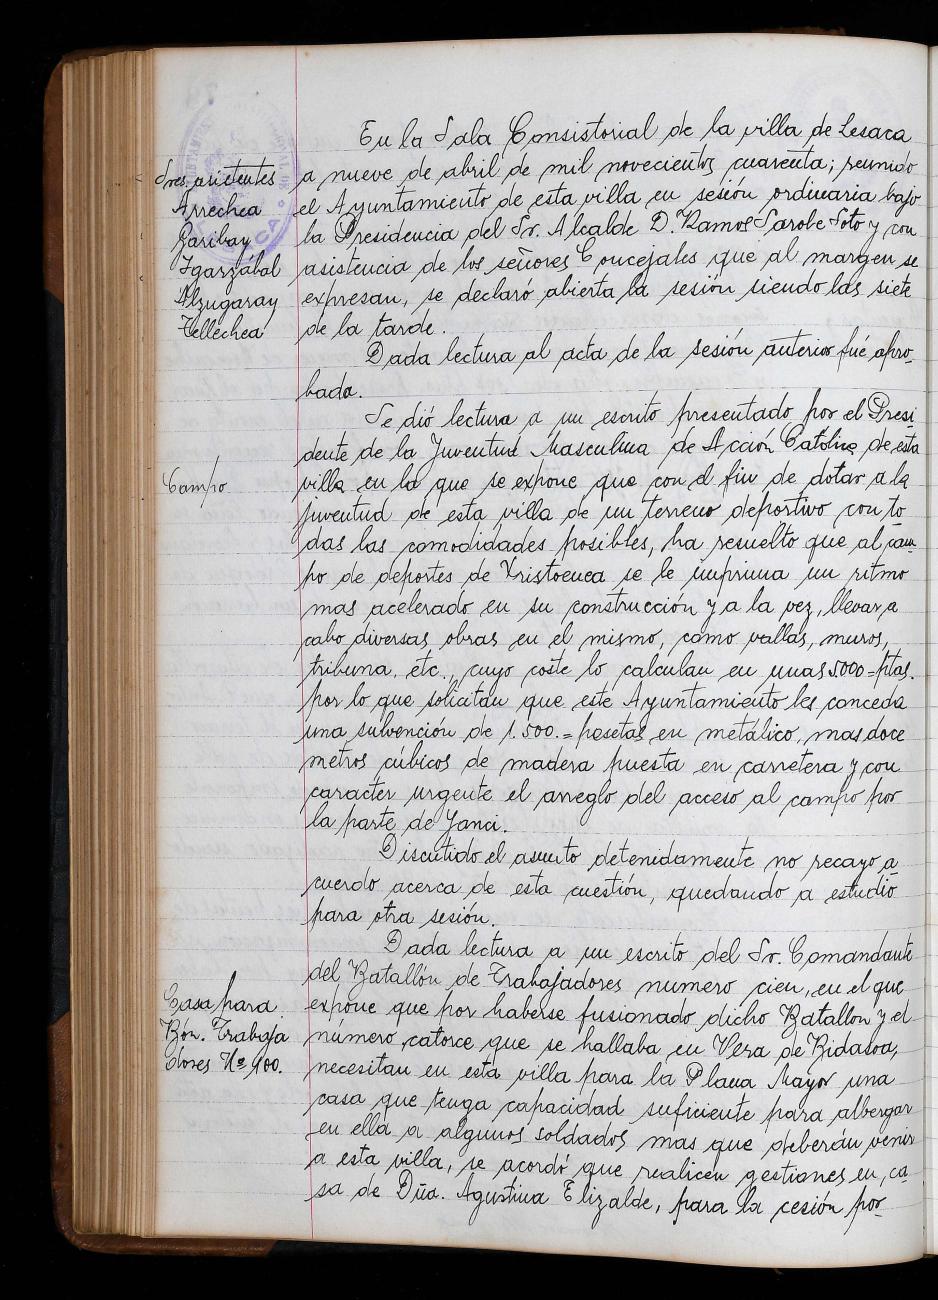 En la Sala Consistorial de la villa de Lesaca
a nueve de abril de mil novecientos cuarenta; reunido
el Ayuntamiento de esta villa en sesión ordinaria bajo
la Presidencia del Sr. Alcalde D. Ramos Sarobe Soto y con
asistencia de los señores Concejales que al margen se
expresan, se declaró abierta la sesión siendo las siete
de la tarde.
Sres asistentes
Arrechea
Garibay
Igarzábal
Alzugaray
Tellechea
Dada lectura al acta de la sesión anterior fué apro-
bada.
Campo
Se dió lectura a un escrito presentado por el Presi-
dente de la Juventud Masculina de Acción Católica de esta
villa en la que se expone que con el fin de dotar a la
juventud de esta villa de un terreno deportivo con to-
das las comodidades posibles, ha resuelto que al cam-
po de deportes de Xristoenea se le imprima un ritmo
mas acelerado en su construcción y a la vez, llevar a
cabo diversas obras en el mismo, como vallas, muros,
tribuna, etc., cuyo coste lo calculan en unas 5.000=ptas.
por lo que solicitan que este Ayuntamiento les conceda
una subvención de 1.500.= pesetas en metálico, mas doce
metros cúbicos de madera puesta en carretera y con
caracter urgente el arreglo del acceso al campo por
la parte de Yanci.
Discutido el asunto detenidamente no recayo a-
cuerdo acerca de esta cuestión, quedando a estudio
para otra sesión.
Casa para
Bón. Trabaja
dores Nº 100.
Dada lectura a un escrito del Sr. Comandante
del Batallón de Trabajadores numero cien, en el que
expone que por haberse fusionado dicho Batallon y el
número catorce que se hallaba en Vera de Bidasoa,
necesitan en esta villa para la Plana Mayor una
casa que tenga capacidad suficiente para albergar
en ella a algunos soldados mas que deberán venir
a esta villa, se acordó que realicen gestiones en ca-
sa de Dña. Agustina Elizalde, para la cesión por